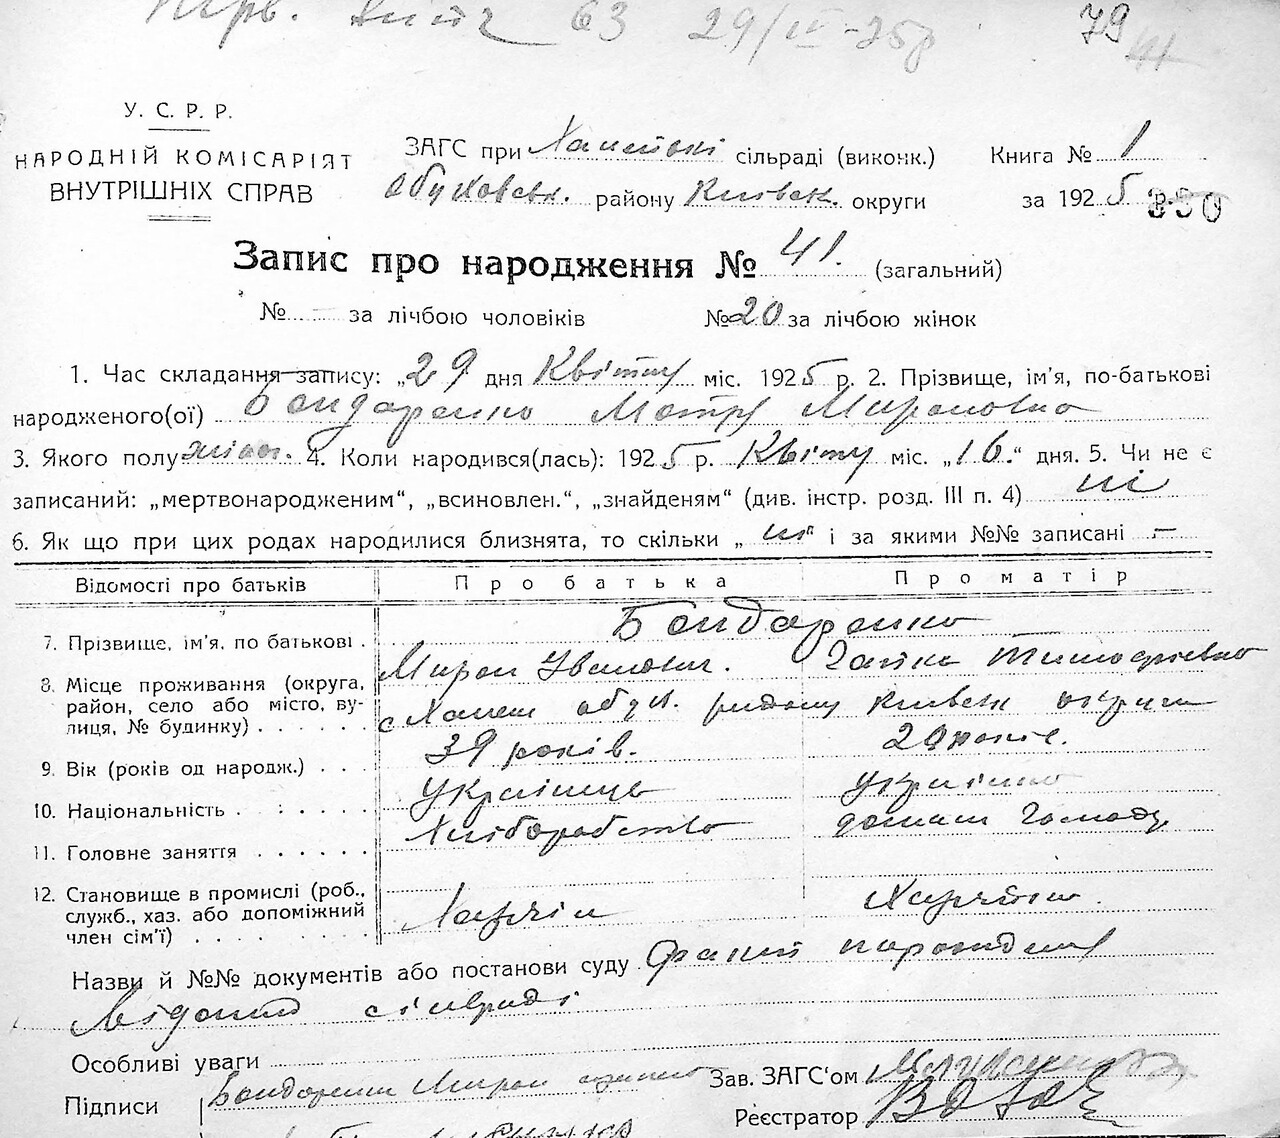 63 29/IV-25р 79
У. С. Р. Р.
НАРОДНІЙ КОМІСАРІЯТ
ВНУТРІШНІХ СПРАВ
ЗАГС при сільраді (виконк.)
Обуховськ. району Київськ. округи
Книга № 1
за 1925 р. 350
Запис про народження № 41. (загальний)
№ — за лічбою чоловіків №20 за лічбою жінок
1. Час складання запису: „29 дня Квітну міс. 1925 р. 2. Прізвище, ім'я, по-батькові
народженого(ої) Бондаренко Мотря Мироновна
3. Якого полу жіноч. 4. Коли народився(лась): 1925 р. Квітну міс. „16.“ дня. 5. Чи не є
записаний: „мертвонародженим“, „всиновлен.“, „знайденям“ (див. інстр. розд. III п. 4) ні
6. Як що при цих родах народилися близнята, то скільки „ ні“ і за якими №№ записані —
Відомості про батьків Про батька Про матір
7. Прізвище, ім'я, по батькові . Бондаренко
Мирон Іванович. Гапка Тимофієвна
8. Місце проживання (округа,
район, село або місто, ву-
лиця, № будинку) . . . . . . с обух. району Київськ округи
9. Вік (років од народж.) . . . 39 років. 29 років.
10. Національність . . . . . . Українець Українка
11. Головне заняття . . . . . . Хліборобство домаш
12. Становище в промислі (роб.,
служб., хаз. або допоміжний
член сім'ї) . . . . . . . . .
Назви й №№ документів або постанови суду Факт народження
Відомий сільраді
Особливі уваги
Підписи Бондаренко Мирон
Зав. ЗАГС'ом
Реєстратор